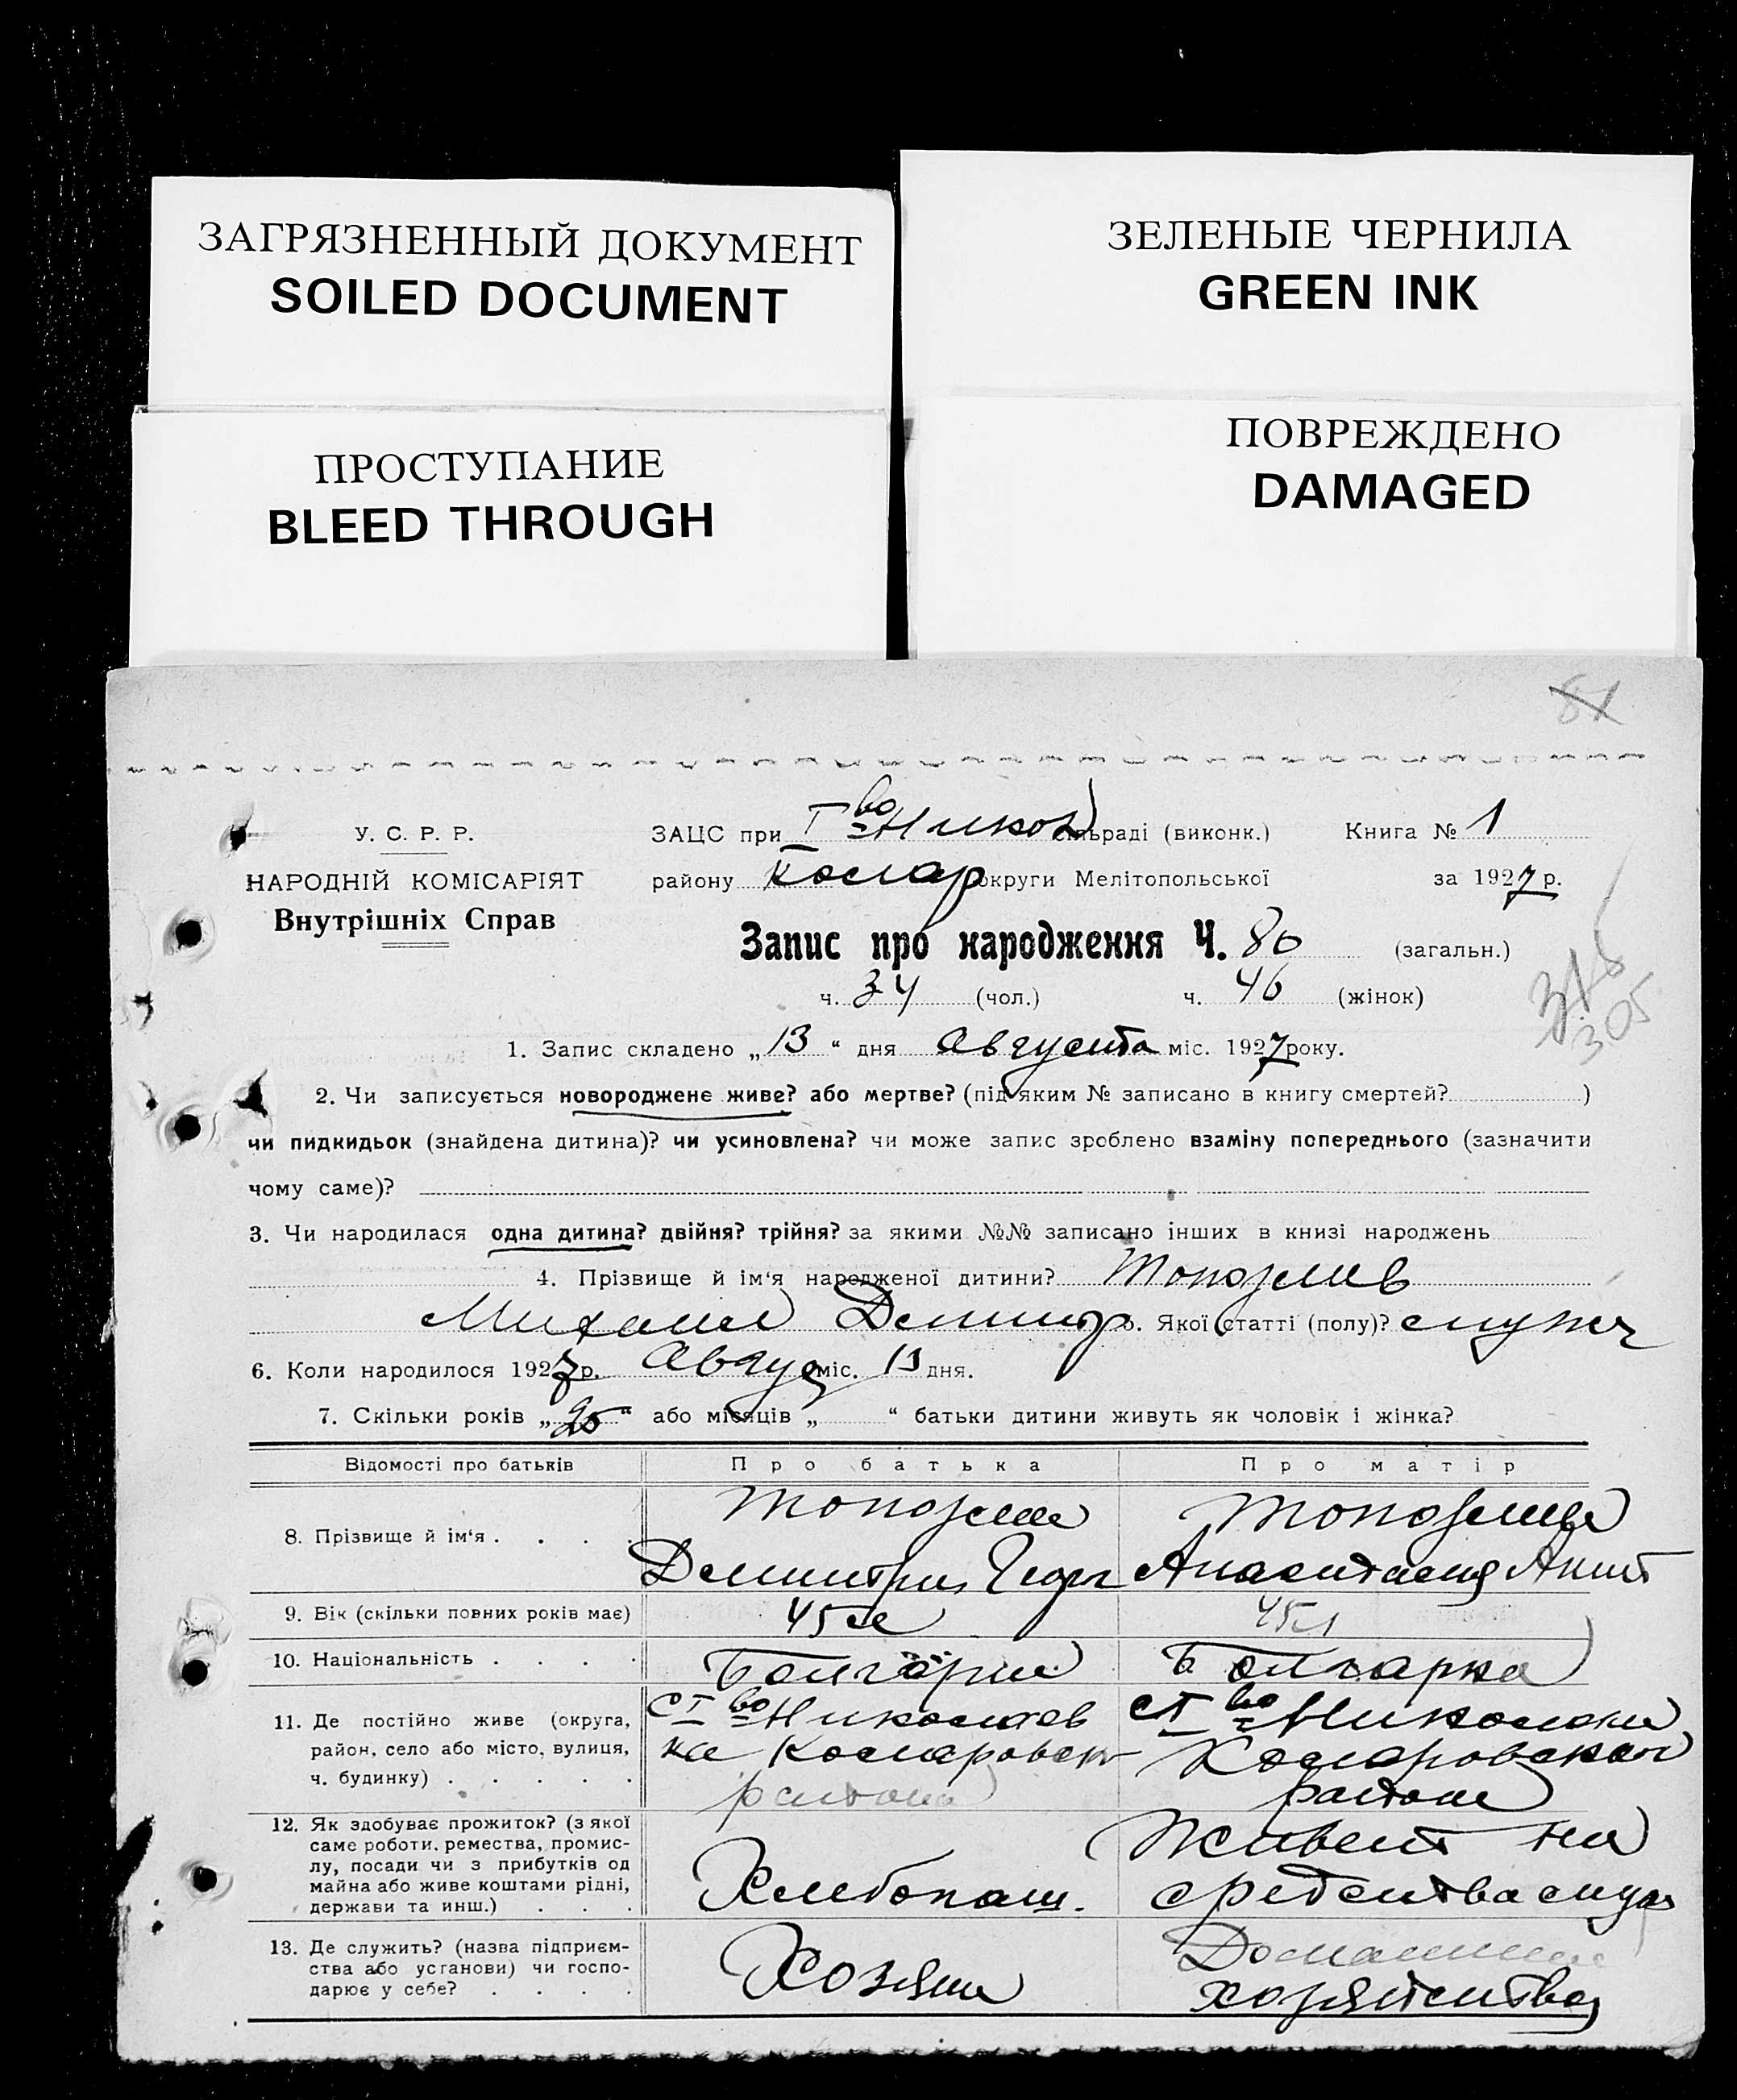 ЗАГРЯЗНЕННЫЙ ДОКУМЕНТ
SOILED DOCUMENT
ЗЕЛЕНЫЕ ЧЕРНИЛА
GREEN INK
ПРОСТУПАНИЕ
BLEED THROUGH
ПОВРЕЖДЕНО
DAMAGED
81
У. С. Р. Р.
НАРОДНІЙ КОМІСАРІЯТ
Внутрішніх Справ
ЗАЦС при Никол сільраді (виконк.) Книга № 1
району Коларо округи Мелітопольської за 1927 р.
Запис про народження Ч. 80 (загальн.)
ч. 34 (чол.) ч. 46 (жінок)
305
1. Запис складено „13“ дня Августа міс. 1927 року.
2. Чи записується новороджене живе? або мертве? (під яким № записано в книгу смертей? )
чи пидкидьок (знайдена дитина)? чи усиновлена? чи може запис зроблено взаміну попереднього (зазначити
чому саме)?
3. Чи народилася одна дитина? двійня? трійня? за якими №№ записано інших в книзі народжень
4. Прізвище й ім‘я народженої дитини? Топозлиев
Михаил Демитр 5. Якої статті (полу)? мужч
6. Коли народилося 1927 р. Авгус міс. 13 дня.
7. Скільки років „25“ або місяців „ “ батьки дитини живуть як чоловік і жінка?
Відомості про батьків Про батька Про матір
8. Прізвище й ім‘я
Демитрий Георг Анастасия
9. Вік (скільки повних років має) 45 л 45 л
10. Національність Болгарин Болгарка
11. Де постійно живе (округа, район, село або місто, вулиця, ч. будинку)
Николаев
ка Коларовск
района
Николаевка
Коларовского
района
12. Як здобуває прожиток? (з якої саме роботи, ремества, промислу, посади чи з прибутків од майна або живе коштами рідні, держави та инш.)
Хлебопаш.
Живет на
средства мужа
13. Де служить? (назва підприємства або установи) чи господарює у себе?
Хозяин
Домашнее
хозяйство